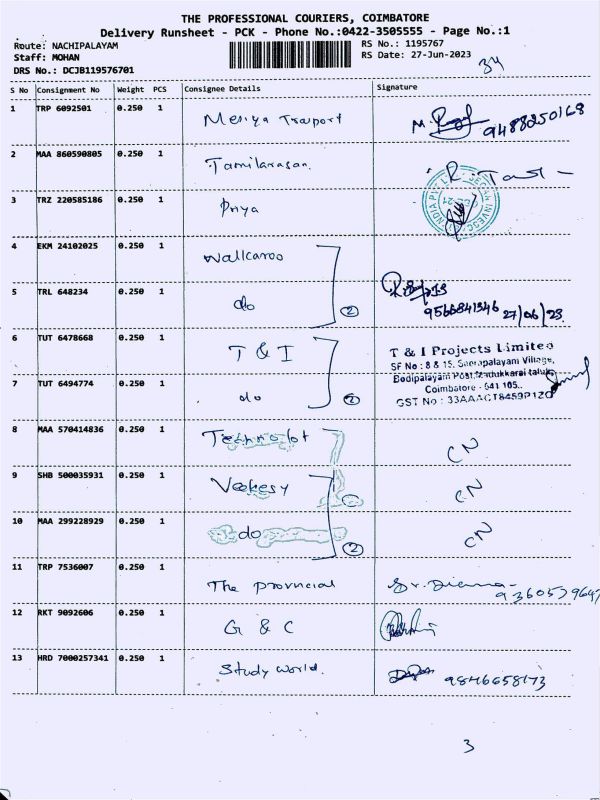 THE PROFESSIONAL COURIERS, COIMBATORE
Delivery Runsheet - PCK - Phone No.:0422-3505555 - Page No.:1
Route: NACHIPALAYAM RS No.: 1195767
Staff: MOHAN RS Date: 27-Jun-2023
DRS No.: DCJB119576701 34
S No Consignment No Weight PCS Consignee Details Signature
1 TRP 6092501 0.250 1 Meriya Trauport M. 9488250168
2 MAA 860590805 0.250 1 Tamilarasan. R.
3 TRZ 220585186 0.250 1 Priya
4 EKM 24102025 0.250 1 Wallcaroo
5 TRL 648234 0.250 1 do 2 9566841346 27/06/23
6 TUT 6478668 0.250 1 T & I T & I Projects Limited
SF No : 8 & 15, Seerapalayam Village,
7 TUT 6494774 0.250 1 do 2 Bodipalayam Post, Madukkarai taluk,
Coimbatore - 641 105..
GST No : 33AAACT8459P1ZO
8 MAA 570414836 0.250 1 Techno lot CN
9 SHB 500035931 0.250 1 Veekesy CN
10 MAA 299228929 0.250 1 do 2 CN
11 TRP 7536007 0.250 1 The provincial Sr. Diana
12 RKT 9092606 0.250 1 G & C
13 HRD 7000257341 0.250 1 Study world. 9846658173
3